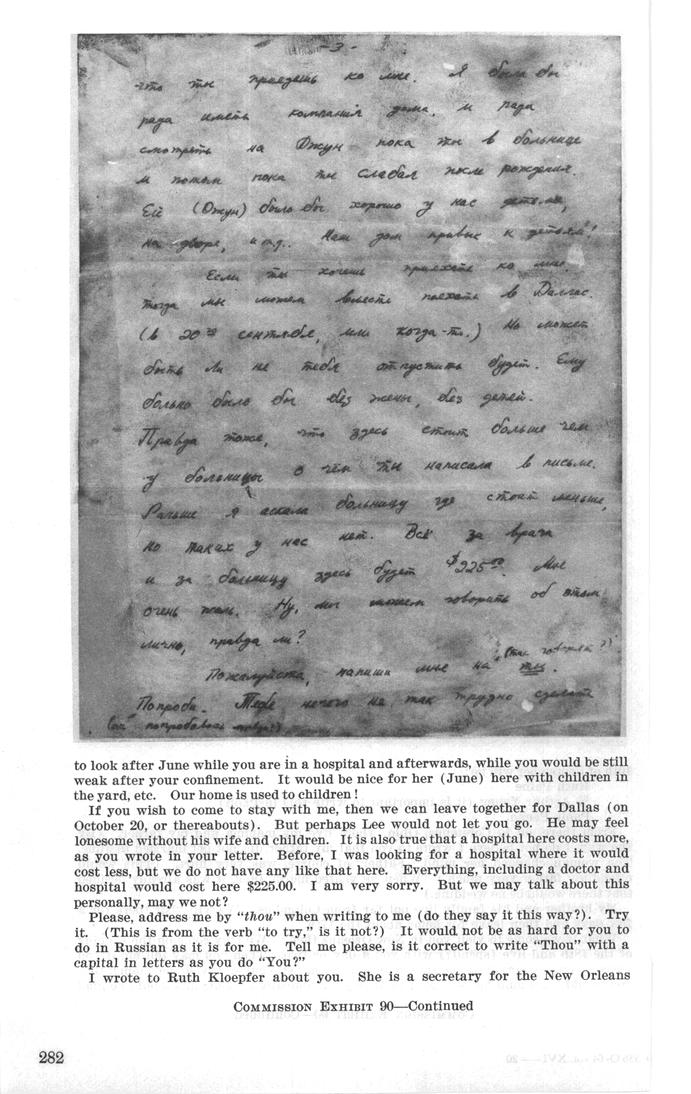 - 3 -
что ты приедешь ко мне. Я была бы
рада иметь компания дома, и рада
смотреть на Джун пока ты в больнице
и потом пока ты слабая после рождения.
Ей (Джун) было бы хорошо у нас детьми,
на дворе, и т.д.. Наш дом привык к детьям!
Если ты хочешь приехать ко мне,
тогда мы можем вместе поехать в Даллас.
(в 20 сентября, или когда-то.) Но может
быть Ли не тебя отпустить будет. Ему
больно было бы без жены, без детей.
Правда тоже, что здесь стоит больше чем
у больницы о чём ты написала в письме.
Раньше я аскала больницу где стоит меньше,
но таких у нас нет. Всё за врача
и за больницу здесь будет $225.00. Мне
очень жаль. Ну, мы можем говорить об этом
лично, правда ли?
(так говорят?)
Пожалуйста, напиши мне на "ты".
Попроби. Тебе нечего не так трудно сделать
to look after June while you are in a hospital and afterwards, while you would be still
weak after your confinement. It would be nice for her (June) here with children in
the yard, etc. Our home is used to children!
If you wish to come to stay with me, then we can leave together for Dallas (on
October 20, or thereabouts). But perhaps Lee would not let you go. He may feel
lonesome without his wife and children. It is also true that a hospital here costs more,
as you wrote in your letter. Before, I was looking for a hospital where it would
cost less, but we do not have any like that here. Everything, including a doctor and
hospital would cost here $225.00. I am very sorry. But we may talk about this
personally, may we not?
Please, address me by "thou" when writing to me (do they say it this way?). Try
it. (This is from the verb "to try," is it not?) It would not be as hard for you to
do in Russian as it is for me. Tell me please, is it correct to write "Thou" with a
capital in letters as you do "You?"
I wrote to Ruth Kloepfer about you. She is a secretary for the New Orleans
COMMISSION EXHIBIT 90—Continued
282